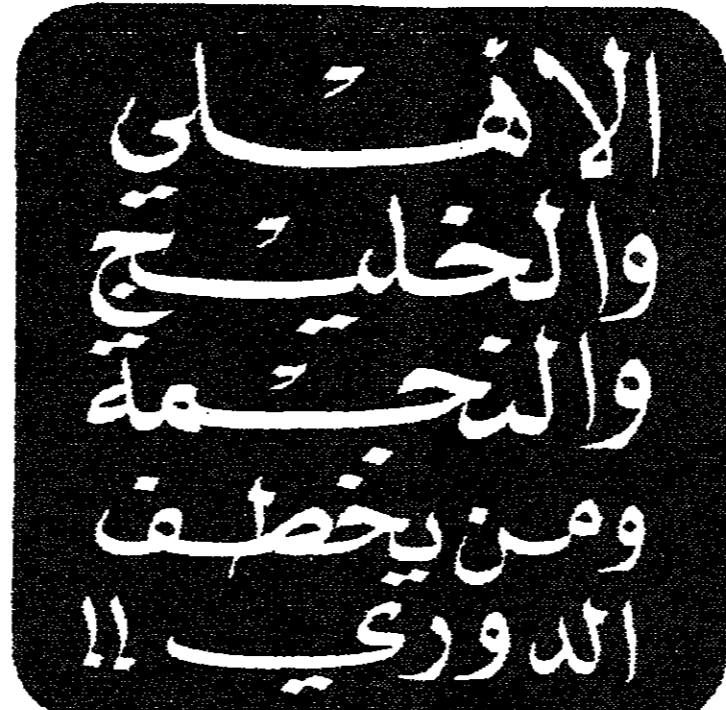 الاهلي
والخليج
والنجمة
ومن يخطف
الدوري !!